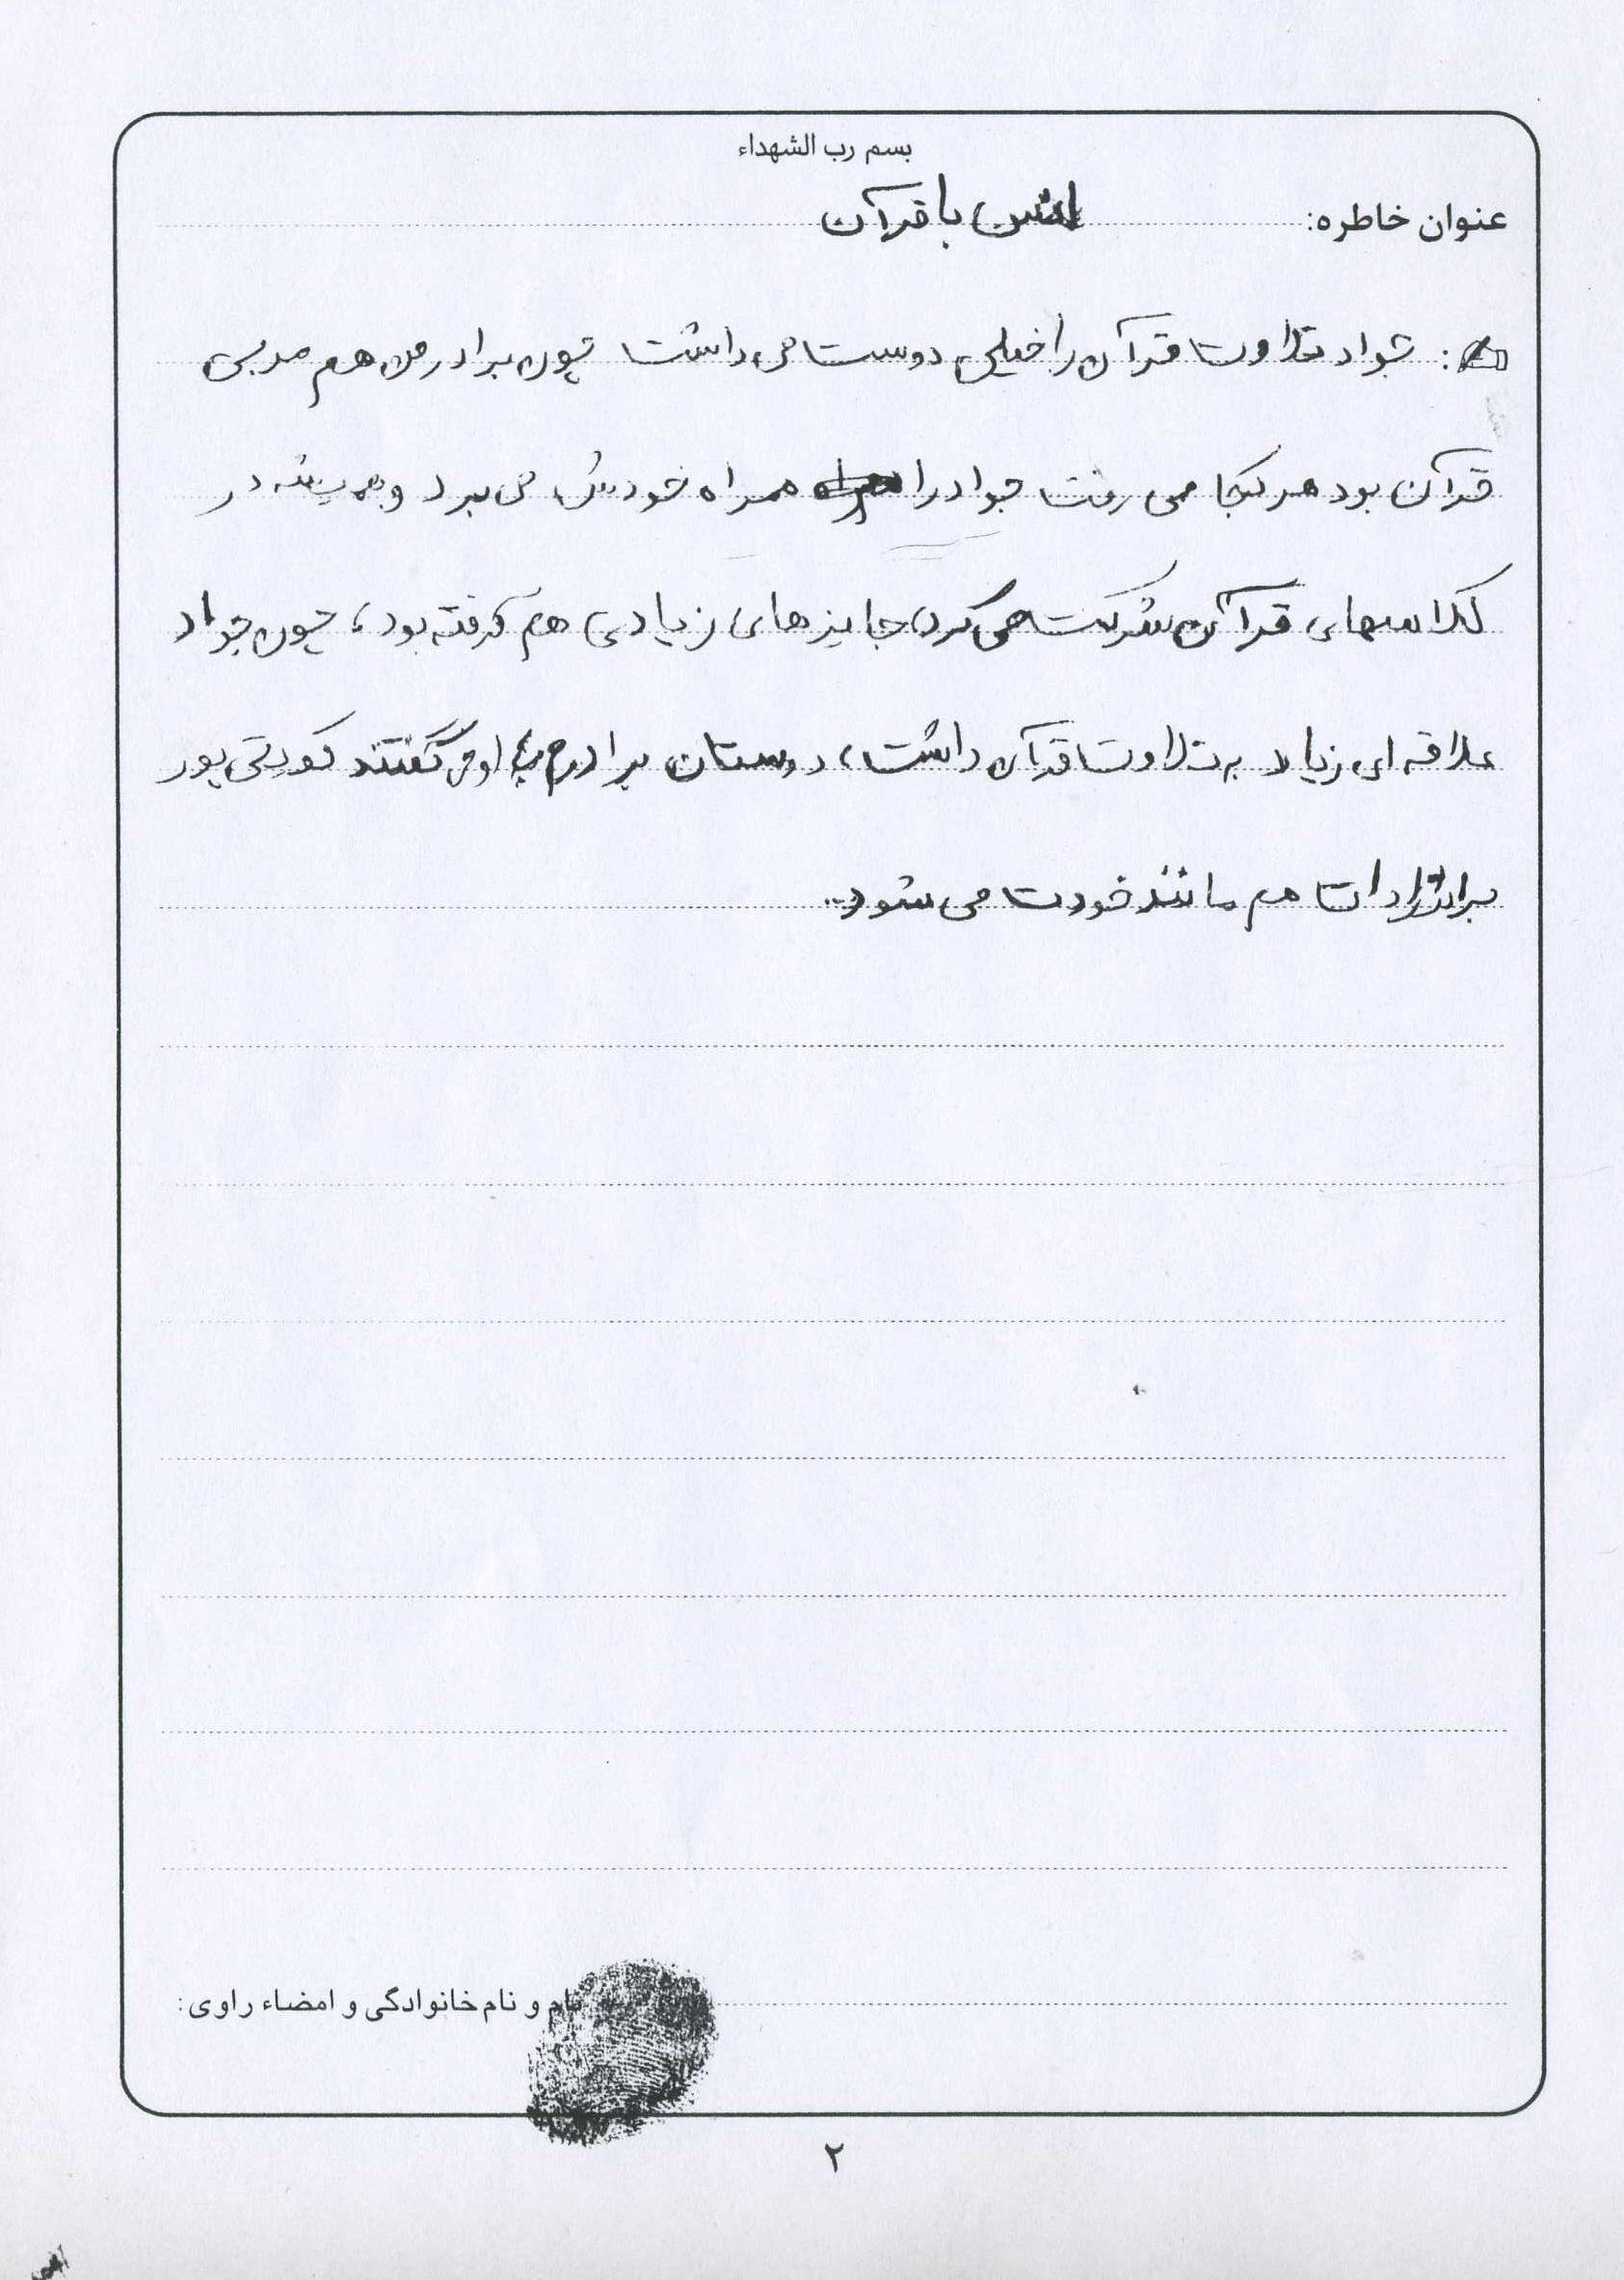 بسم رب الشهداء
عنوان خاطره: انس با قرآن
: جواد تلاوت قرآن را خیلی دوست می داشت چون برادر من هم مربی
قرآن بود هر کجا می رفت جواد را همراه خودش می برد و همیشه در
کلاسهای قرآن شرکت می کرد، جایزهای زیادی هم گرفته بود، چون جواد
علاقه ای زیاد به تلاوت قرآن داشت، دوستان برادرم به او می گفتند کویتی پور
برادرزادات هم مانند خودت می شود..
نام و نام خانوادگی و امضاء راوی:
۲